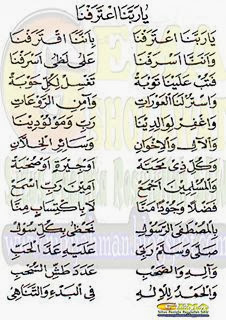 يَارَبَّنَا اعْتَرَفْنَا
يَارَبَّنَا اعْتَرَفْنَا بِأَنَّنَا اقْتَرَفْنَا
وَأَنَّنَا أَسْرَفْنَا عَلَى لَظَى أَشْرَفْنَا
فَتُبْ عَلَيْنَا تَوْبَةً تَغْسِلْ لِكُلِّ حَوْبَةٍ
وَاسْتُرْ لَنَا الْعَوْرَاتِ وَآمِنِ الرَّوْعَاتِ
وَاغْفِرْ لِوَالِدِيْنَا رَبِّ وَمَوْلُوْدِيْنَا
وَالْآلِ وَالْإِخْوَانِ وَسَائِرِ الْخِلَّانِ
وَكُلِّ ذِيْ مَحَبَّةٍ أَوْجِيْرَةٍ أَوْصُحْبَةٍ
وَالْمُسْلِمِيْنَ أَجْمَعْ آمِيْنَ رَبِّ اسْمَعْ
فَضْلًا وَجُوْدًا مَنَّا لَا بِاكْتِسَابٍ مِنَّا
بِالْمُصْطَفَى الرَّسُوْلِ نَحْظَى بِكُلِّ سُوْلِ
صَلَّى وَسَلَّمَ رَبِّيْ عَلَيْهِ عَدَّ الْحَبِّ
وَآلِهِ وَالصَّحْبِ عَدَدَ طَشِّ السُّحْبِ
وَالْحَمْدُ لِلْإِلَهِ فِي الْبَدْءِ وَالتَّنَاهِيْ